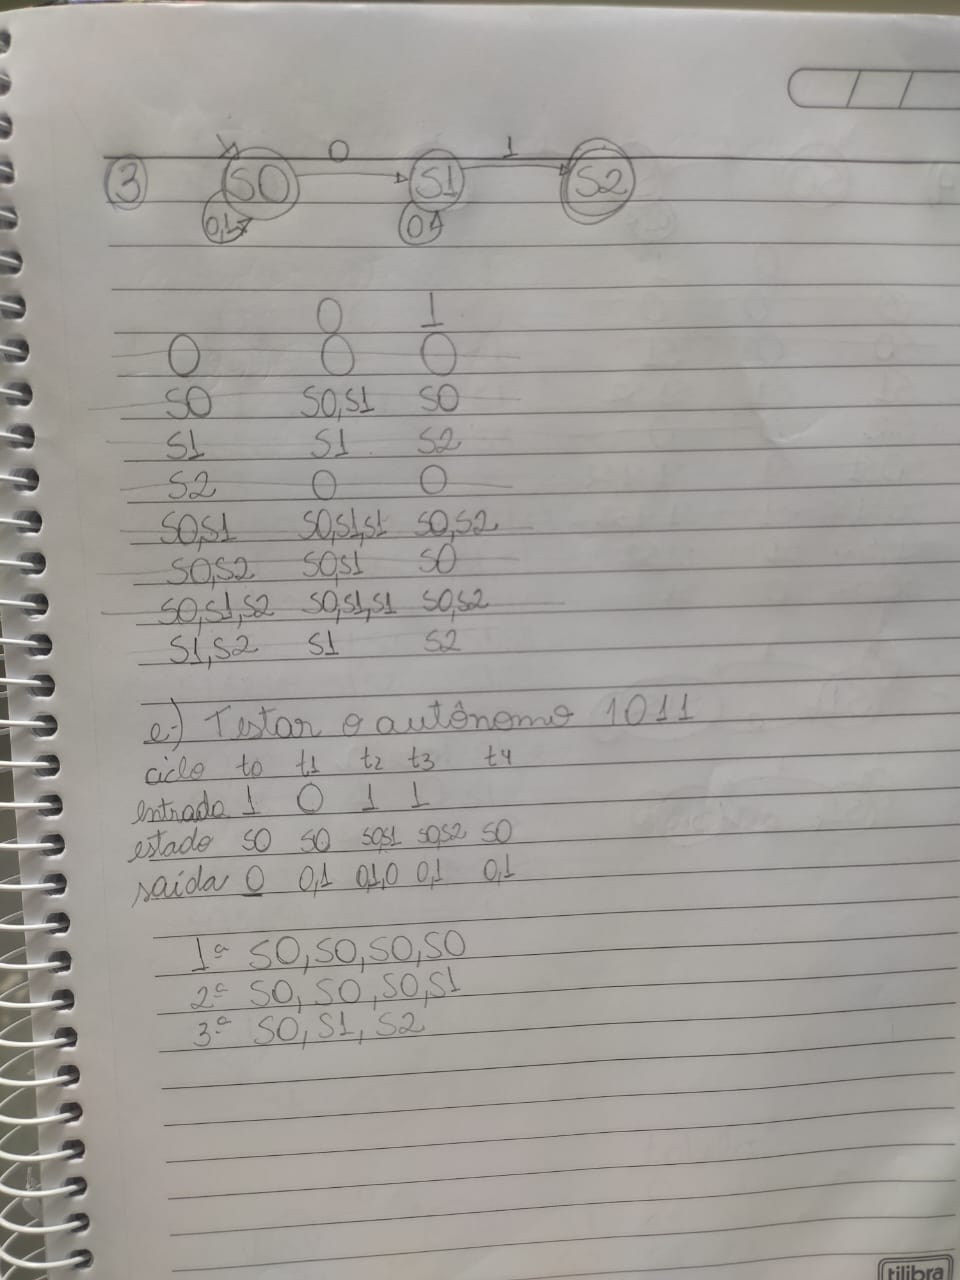 0 1
3 S0 S1 S2
0,1 0
0 1
0 0 0
S0 S0,S1 S0
S1 S1 S2
S2 0 0
S0,S1 S0,S1,S1 S0,S2
S0,S2 S0,S1 S0
S0,S1,S2 S0,S1,S1 S0,S2
S1,S2 S1 S2
e-) Testar o autônomo 1011
ciclo t0 t1 t2 t3 t4
entrada 1 0 1 1
estado S0 S0 S0S1 S0,S2 S0
saída 0 0,1 0,1,0 0,1 0,1
1ª S0,S0,S0,S0
2ª S0, S0, S0,S1
3ª S0, S1, S2
tilibra